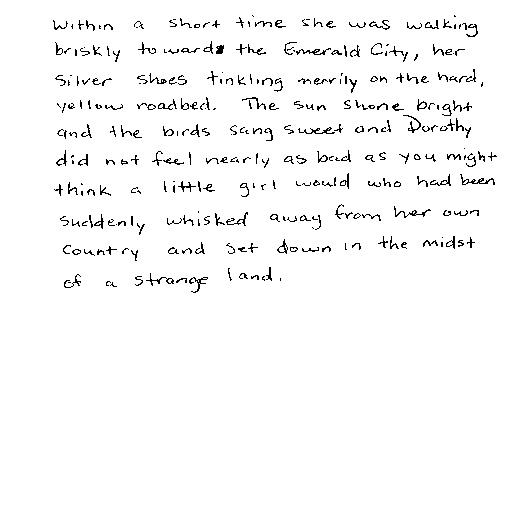 Within a short time she was walking
briskly towards the Emerald City, her
Silver Shoes tinkling merrily on the hard,
yellow roadbed. The sun shone bright
and the birds sang sweet and Dorothy
did not feel nearly as bad as you might
think a little girl would who had been
suddenly whisked away from her own
country and set down in the midst
of a strange land.